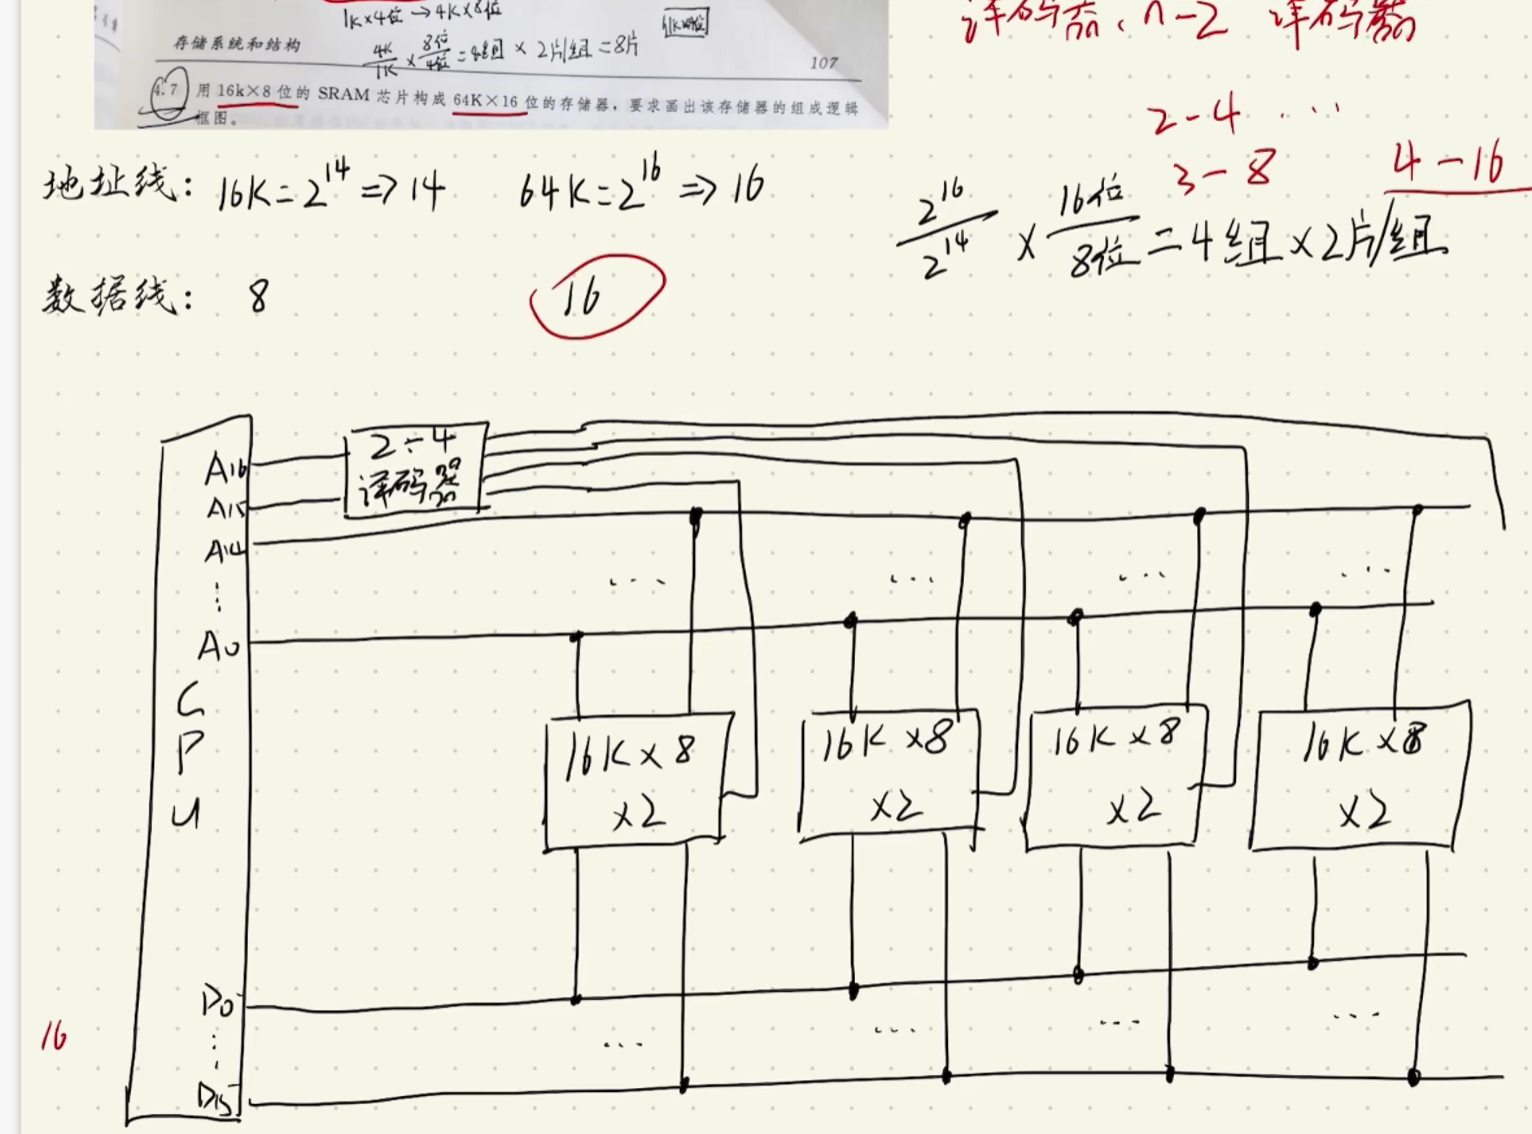 1K×4位→4K×8位
存储系统和结构
107
4.7 用 16k×8 位的 SRAM 芯片构成 64K×16 位的存储器，要求画出该存储器的组成逻辑
框图。
译码器、n-2 译码器
2-4 ...
3-8 4-16
地址线: 16K=2^14 => 14 64K=2^16 => 16
2^16/2^14 × 16位/8位 = 4组×2片/组
数据线: 8 16
2÷4
译码器
A16
A15
A14
⋮
A0
... ... ... ...
CPU
16K×8 ×2
16K×8 ×2
16K×8 ×2
16K×8 ×2
D0
⋮
D15
... ... ... ...
16